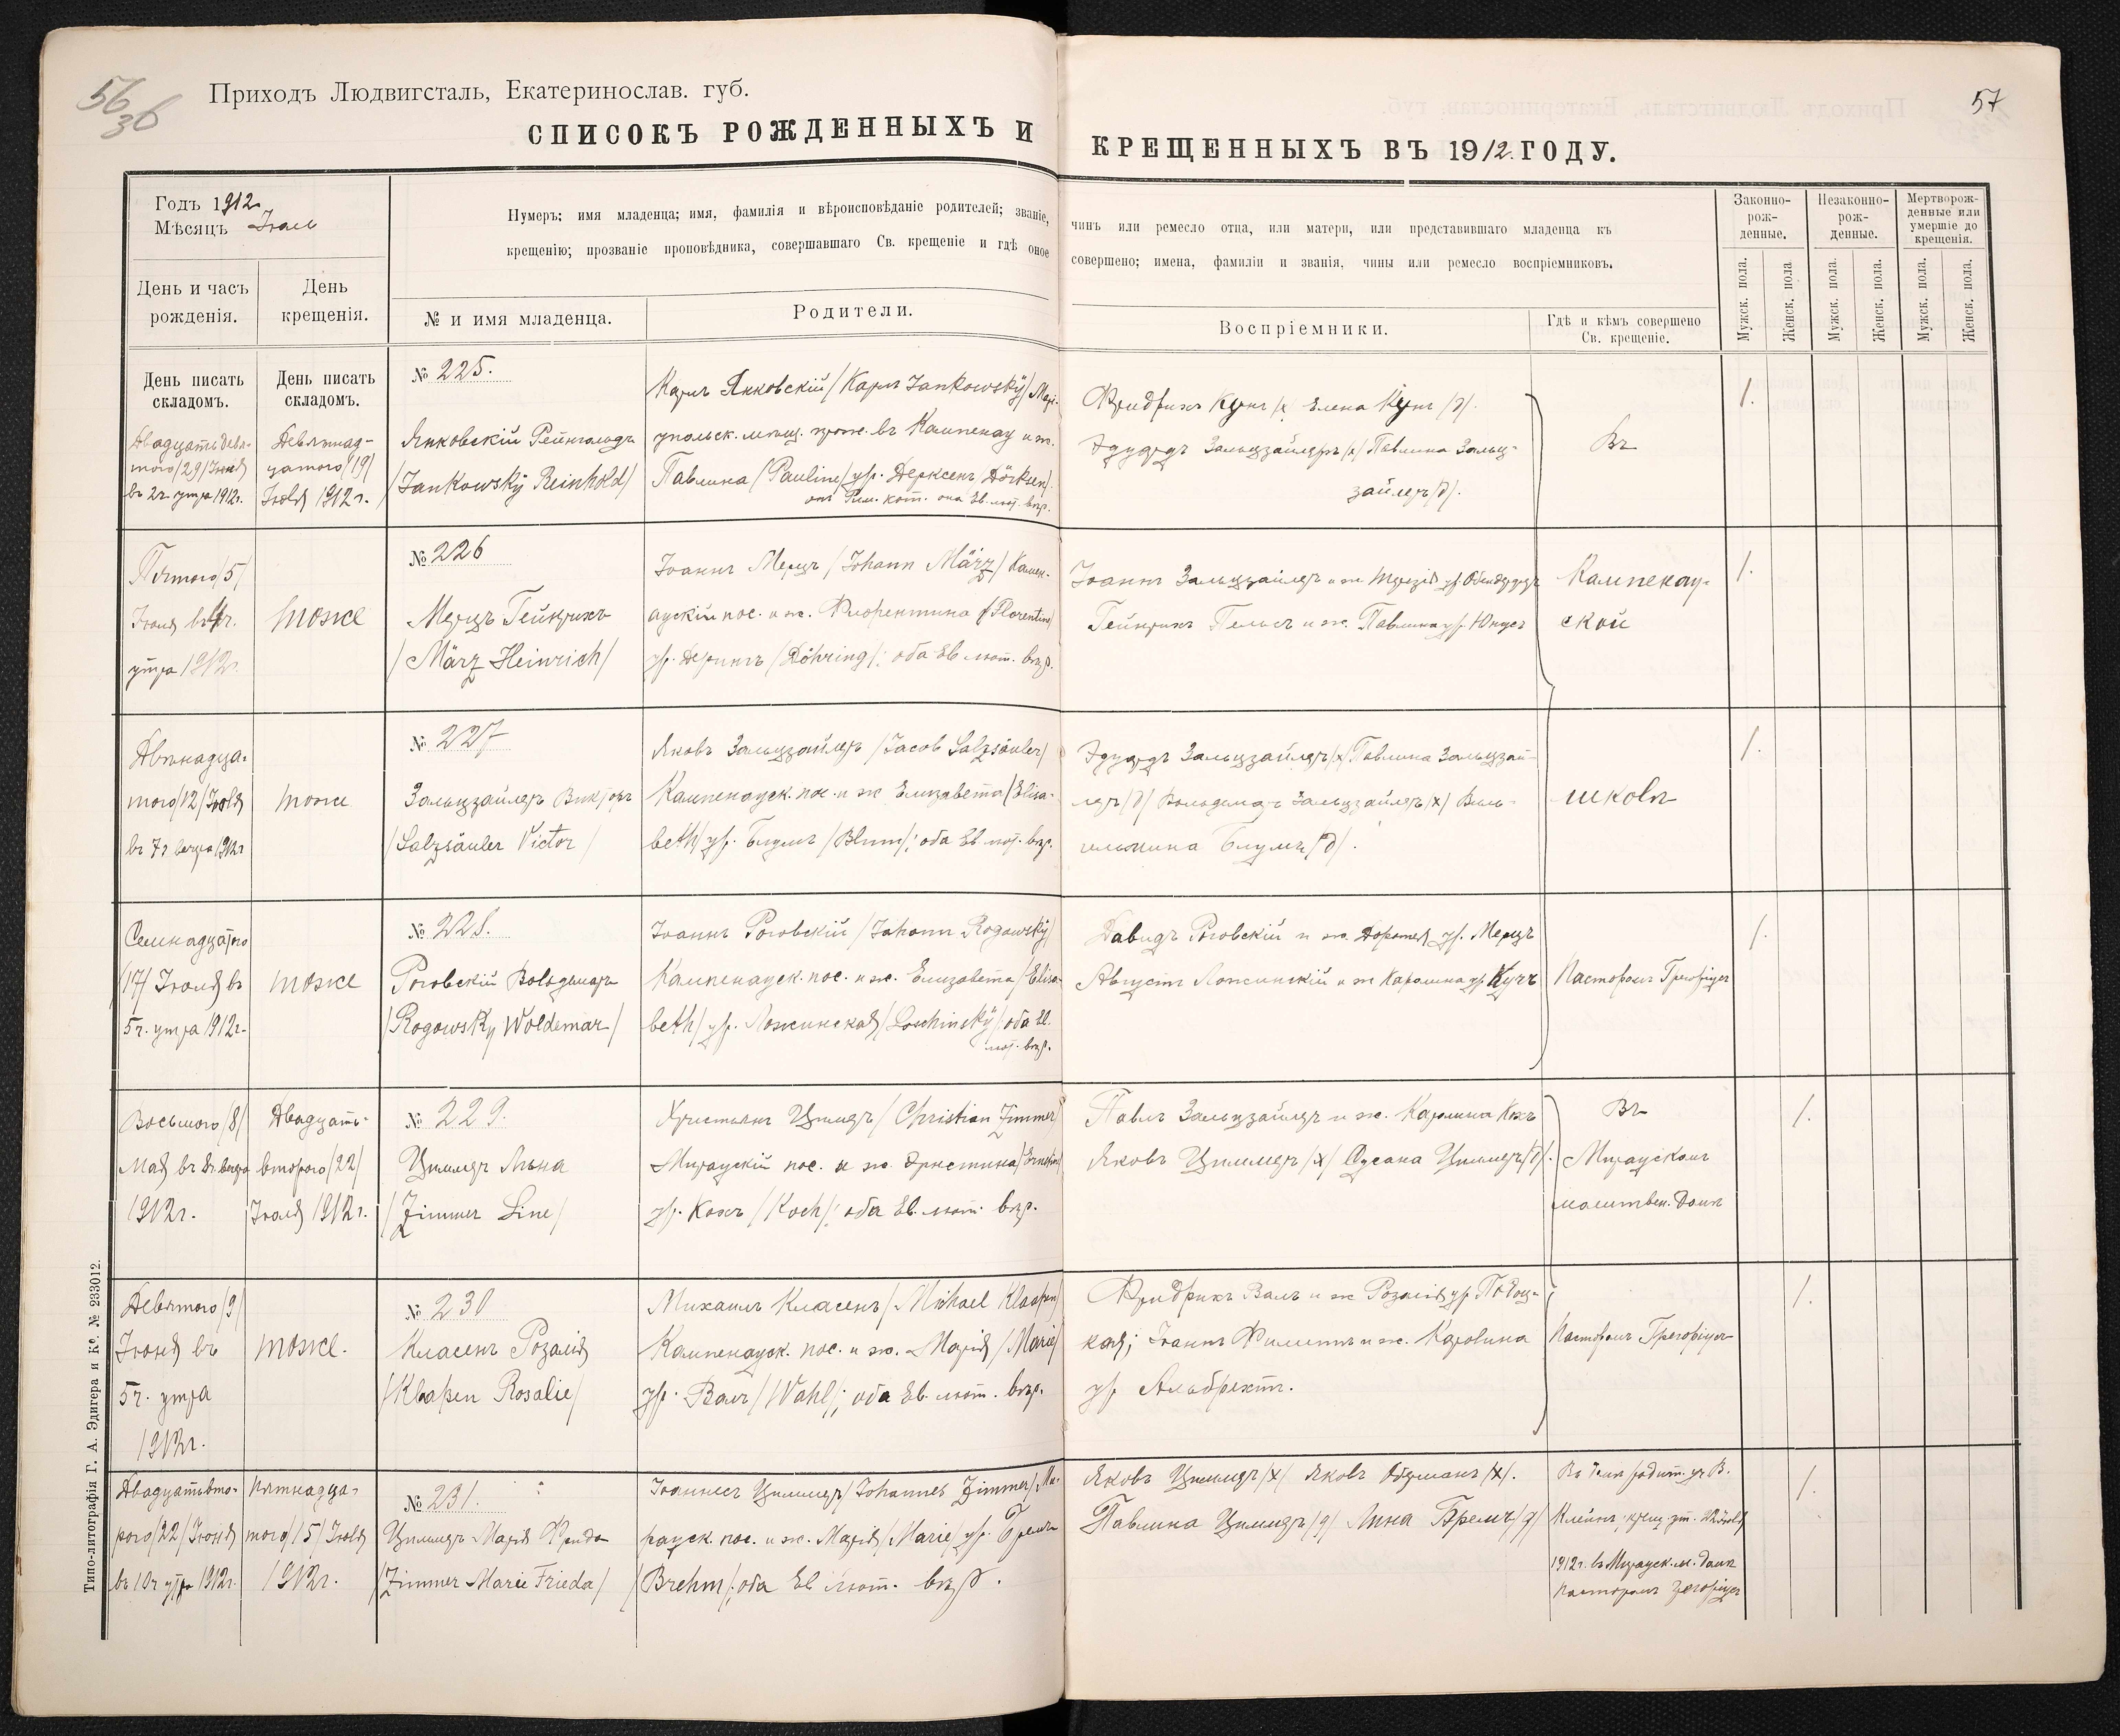 56
36
Приходъ Людвигсталь, Екатеринослав. губ.
57
СПИСОКЪ РОЖДЕННЫХЪ И КРЕЩЕННЫХЪ ВЪ 1912 ГОДУ.
Годъ 1912
Мѣсяцъ
Нумеръ; имя младенца; имя, фамилія и вѣроисповѣданіе родителей; званіе, чинъ или ремесло отца, или матери, или представившаго младенца къ
крещенію; прозваніе проповѣдника, совершавшаго Св. крещеніе и гдѣ оное совершено; имена, фамиліи и званія, чины или ремесло воспріемниковъ.
Законно-
рож-
денные.
Незаконно-
рож-
денные.
Мертворож-
денные или
умершіе до
крещенія.
День и часъ
рожденія.
День
крещенія.
№ и имя младенца.
Родители.
Воспріемники.
Гдѣ и кѣмъ совершено
Св. крещеніе.
Мужск. пола.
Женск. пола.
Мужск. пола.
Женск. пола.
Мужск. пола.
Женск. пола.
День писать
складомъ.
День писать
складомъ.
Двадцать девя-
таго /29/ Іюня
въ 2ч. утра 1912г.
Девятнад-
цатого /19/
Іюля 1912 г.
№ 225.
Янковскій Рейнгольдъ
/Jankowsky Reinhold/
Карлъ Янковскій / Карл Jankowsky / Марі-
упольск. мѣщ. прож. въ Кампенау и ж.
Павлина / Pauline / ур. Дерксенъ Dörksen/.
онъ Рим. кат. она Ев. лют. вѣр.
Фридрихъ Кунъ /х/ Елена Кунъ /д/.
Эдуардъ Зальцзайлеръ /х/ Павлина Зальц-
зайлеръ /д/.
Въ
1.
Пятого /5/
Іюля въ 4ч.
утра 1912г.
тоже
№ 226
Мерцъ Гейнрихъ
/März Heinrich/
Іоаннъ Мерцъ / Johann März / Кампен-
аускій пос. и ж. Флорентина / Florentine/
ур. Дерингъ / Döhring /; оба Ев. лют. вѣр.
Іоаннъ Зальцзайлеръ и ж.
Гейнрихъ Гельсъ и ж. Павлина ур. Юнусъ
Кампенау-
ской
1.
Двѣнадца-
того /12/ Іюля
въ 7ч вечера 1912г
тоже
№ 227
Зальцзайлеръ Викторъ
/Salzsäuler Victor/
Яковъ Зальцзайлеръ / Jacob Salzsäuler/
Кампенауск. пос. и ж Елизавета / Elisa-
beth / ур. Блумъ / Blum /; оба Ев. лют. вѣр.
Эдуардъ Зальцзайлеръ /х/ Павлина Зальцзай-
леръ /д/ Вольдемаръ Зальцзайлеръ /х/ Виль-
гельмина Блумъ /д/.
школѣ
1.
Семнадцатого
/17/ Іюля въ
5ч. утра 1912г.
тоже
№ 228.
Роговскій Вольдемаръ
/Rogowsky Woldemar/
Іоаннъ Роговскій / Johann Rogowsky/
Кампенауск. пос. и ж. Елизавета / Elisa-
beth / ур. Ложинская / Loschinsky /; оба Ев.
лют. вѣр.
Давидъ Роговскій и ж. Доротея ур. Мерцъ
Августъ Ложинскій и ж Каролина ур. Кучъ
1.
Восьмого /8/
Мая въ 8ч. вечера
1912г.
Двадцать-
второго /22/
Іюля 1912г.
№ 229.
Циммеръ Лина
/Zimmer Line/
Христіанъ Циммеръ / Christian Zimmer/
Мираускій пос. и ж. Эрнестина / Ernestine/
ур. Кохъ / Koch /; оба Ев. лют. вѣр.
Павлъ Зальцзайлеръ и ж. Каролина Кохъ
Яковъ Циммеръ /х/ Сусана Циммеръ /д/.
Въ
Мираускомъ
молитвен. домѣ
1.
Девятого /9/
Іюня въ
5ч. утра
1912г.
тоже.
№ 230
Класенъ Розалія
/Klaßen Rosalie/
Михаилъ Класенъ / Michael Klaßen/
Кампенауск. пос. и ж. Марія / Marie/
ур. Валъ / Wahl /; оба Ев. лют. вѣр.
Фридрихъ Валъ и ж Розалія ур.
кая; Іоаннъ Филиппъ и ж. Каролина
ур. Альбрехтъ.
1.
Двадцатьвто-
рого /22/ Іюня
въ 10ч утра 1912г.
Пятнадца-
того /15/ Іюля
1912г.
№ 231.
Циммеръ Марія Фрида
/Zimmer Marie Frieda/
Іоаннесъ Циммеръ / Johannes Zimmer / Ми-
рауск. пос. и ж. Марія / Marie / ур. Бремъ
/Brehm/; оба Ев. лют. вѣр.
Яковъ Циммеръ /х/ Яковъ /х/.
Павлина Циммеръ /д/ Лина Бремъ /д/
1912г. въ Мирауск. м. домѣ
1.
Типо-литографія Г. А. Эдигера и К°. № 233012.